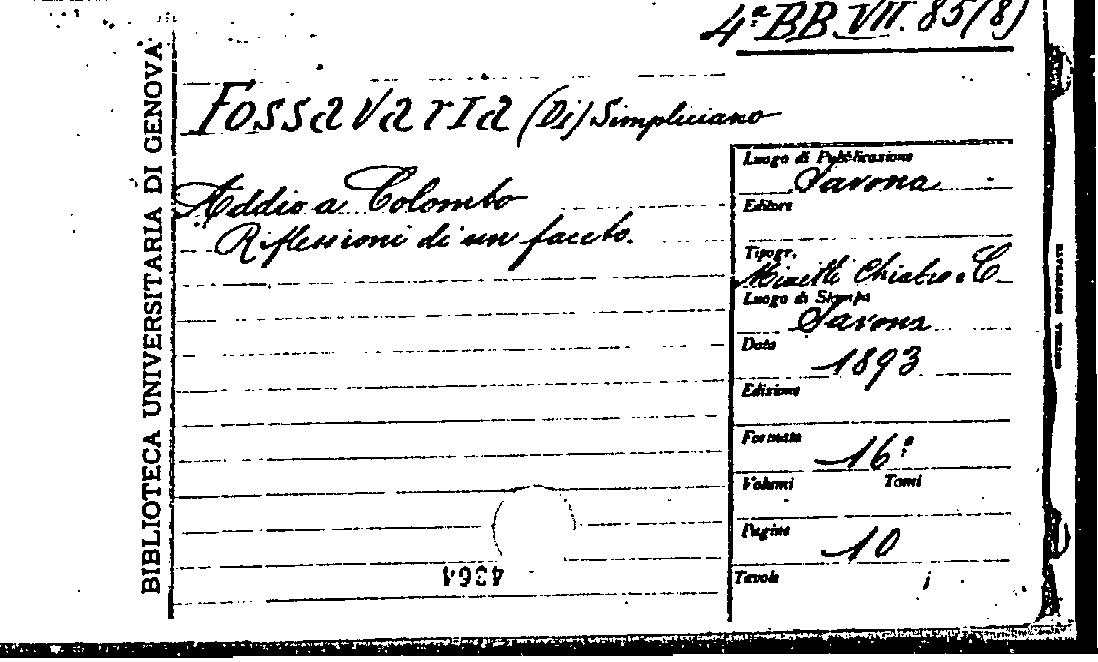 4ª BB. VII. 85(8)
BIBLIOTECA UNIVERSITARIA DI GENOVA
Fossavaria (Di) Simpliciano
Addio a Colombo
Riflessioni di un faceto.
Luogo di Pubblicazione
Savona
Editore
Tipogr.
Miretti Chiabro e C
Luogo di Stampa
Savona
Data
1893
Edizione
Formato
16º
Volumi Tomi
Pagine
10
Tavole
4364